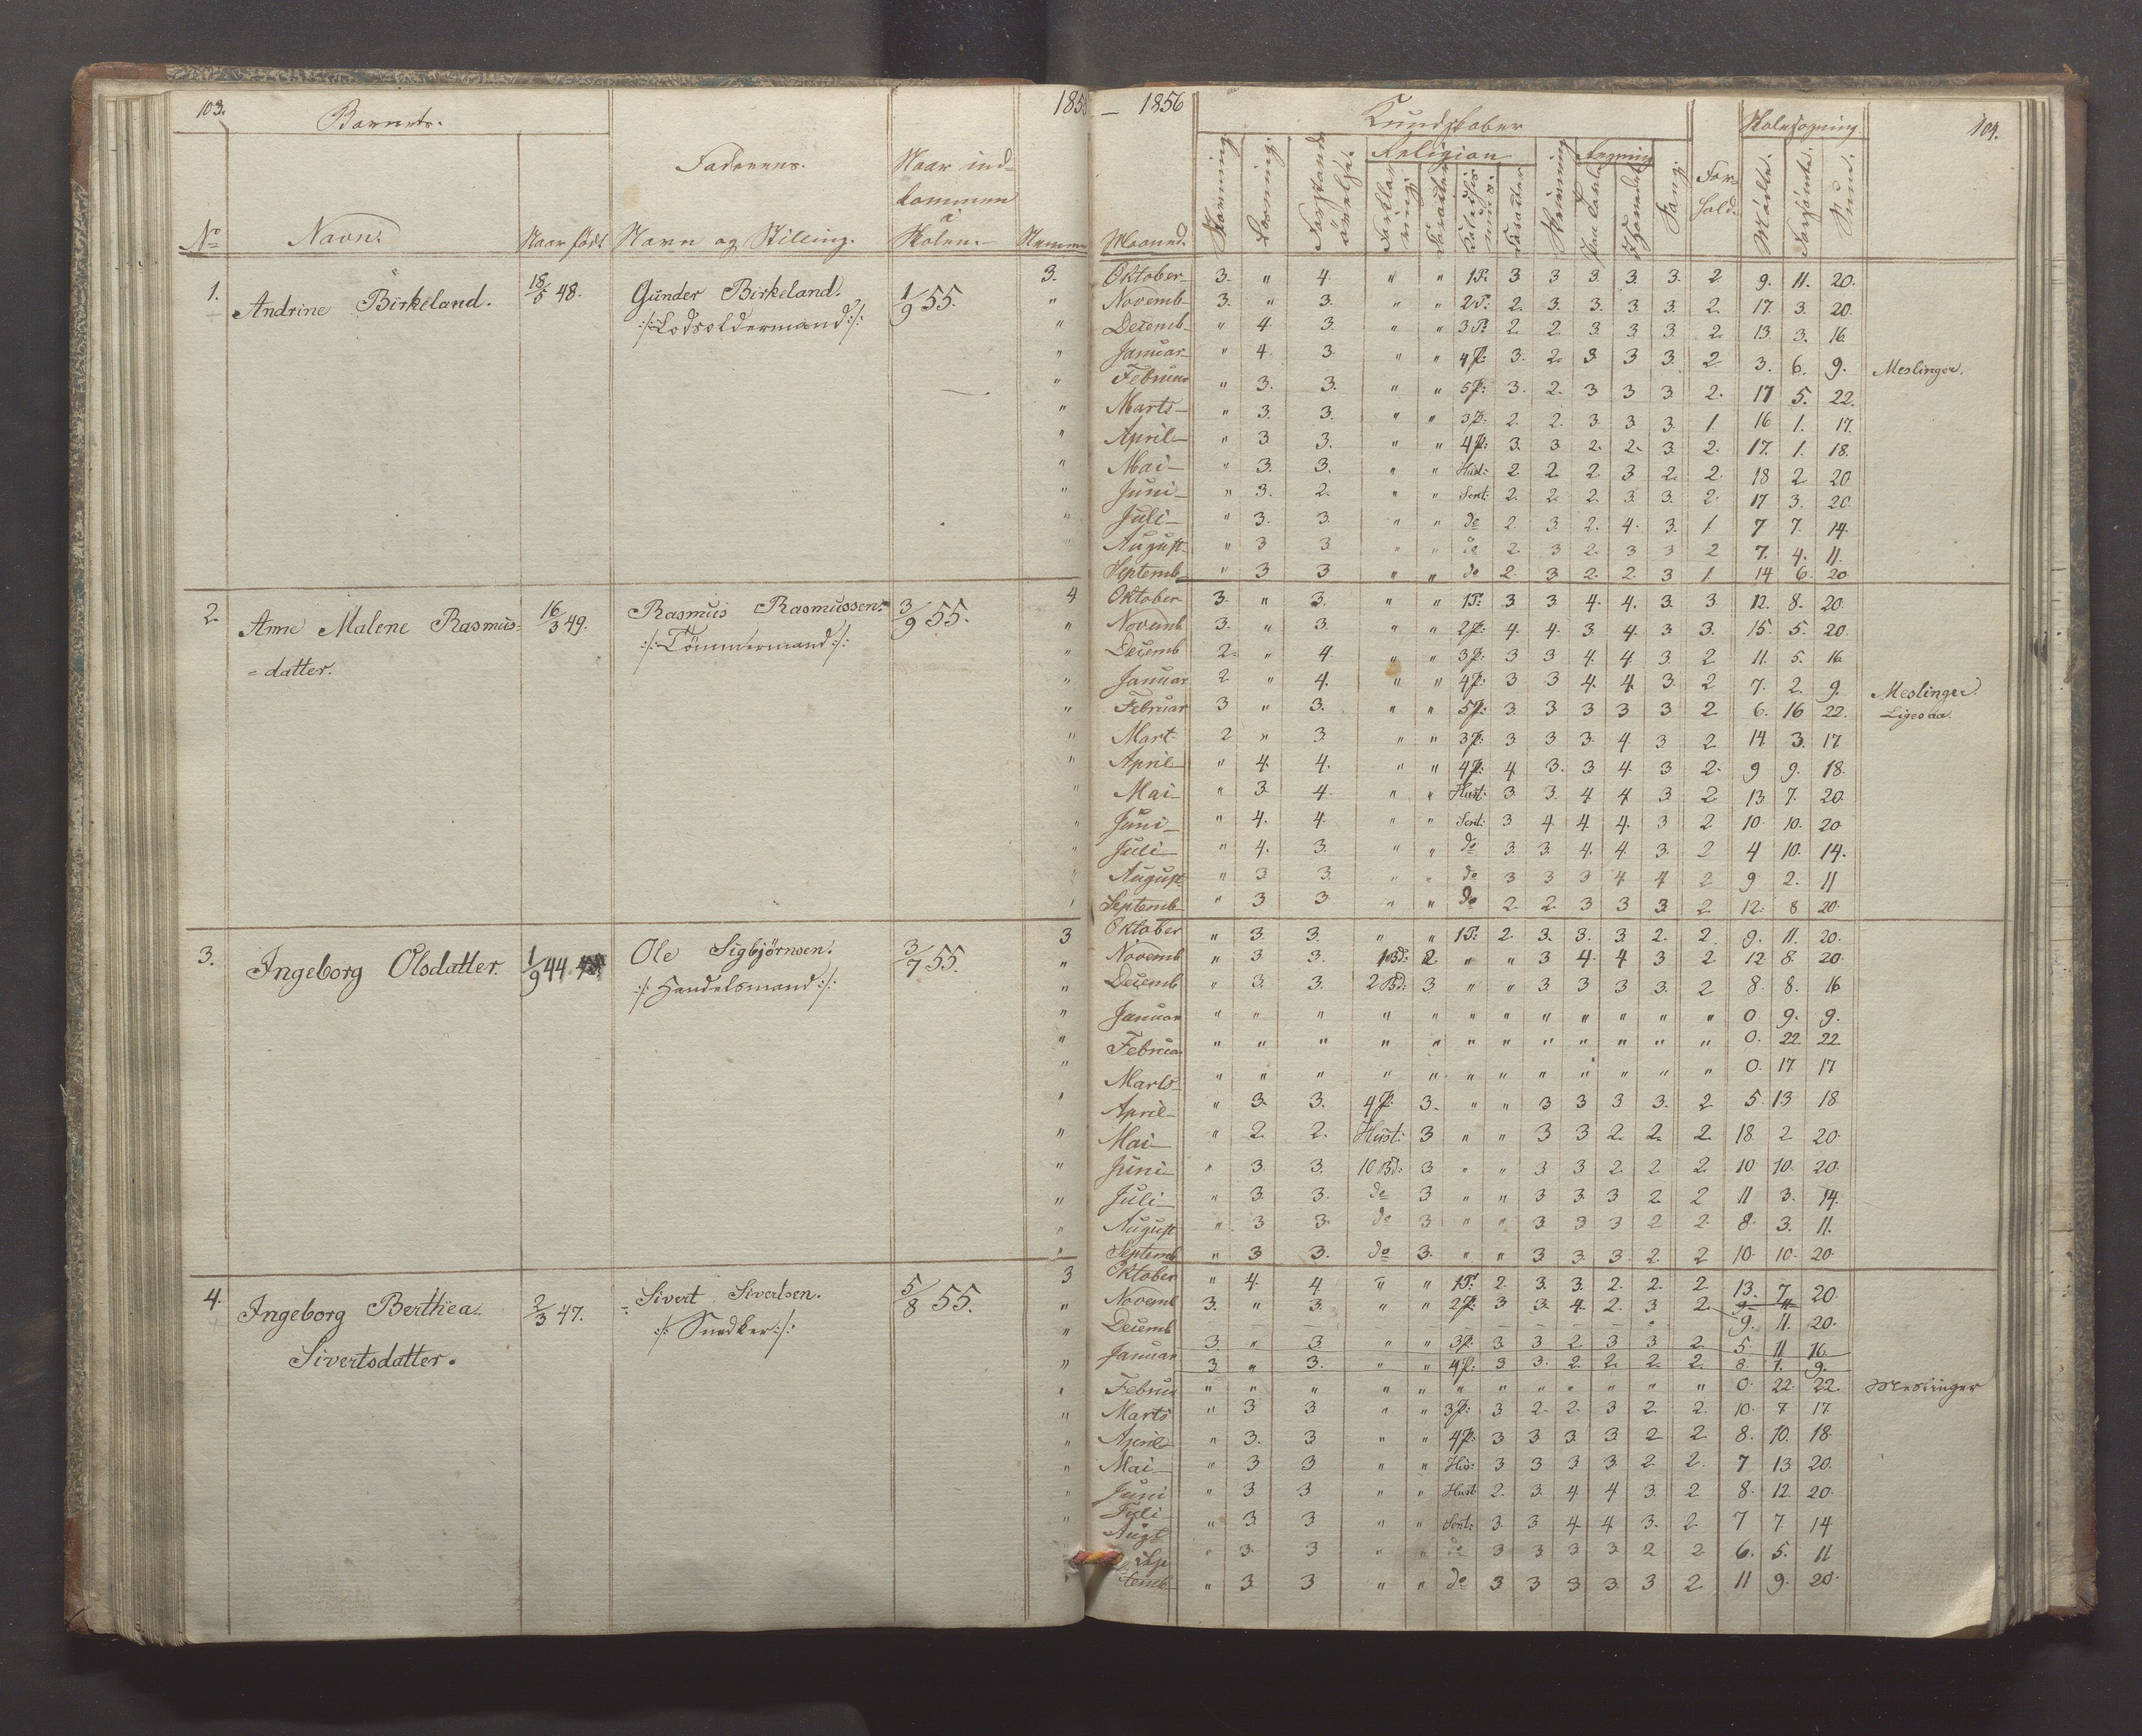 103.
Barnets.
1855 — 1856
Kundskaber
Skolesøgning
104.
Faderens.
Naar ind=
kommen
i
Skolen.
Religion
Regning
For=
hold.
No
Navn.
Naar født
Navn og Stilling.
Maaned.
Stavning
Læsning.
Forklaring
Karakter
Skrivning
Sang.
Mødte.
Forsømte.
Sum.
1. Andrine Birkeland. 18/5 48. Gunder Birkeland. 1/9 55. 3. Oktober 3. " 4. " " 1P. 3 3 3. 3. 3. 2. 9. 11. 20.
:/:Lodsoldermand:/: " Novemb 3. " 3. " " 2P. 2. 3. 3. 3. 3. 2. 17. 3. 20.
" Decemb " 4. 3. " " 3.P. 2 2. 3. 3 3. 2. 13. 3. 16.
" Januar " 4. 3. " " 4P: 3. 2. 3. 3 3. 2. 3. 6. 9. Meslinger.
" Februar " 3. 3. " " 5P: 3. 2. 3 3 3. 2. 17 5. 22.
" Marts " 3. 3. " " 3P: 2. 2. 3. 3 3. 1. 16 1. 17.
" April " 3 3. " " 4P: 3. 3. 2. 2. 3. 2. 17. 1. 18.
" Mai " 3. 3. " " Hust: 2 2. 2 3 2. 2. 18 2 20
" Juni " 3. 2. " " Sent: 2. 2. 2. 3. 3. 2. 17 3. 20.
" Juli " 3. 3. " " do 2. 3. 2. 4. 3. 1. 7 7. 14.
" August " 3 3 " " do 2. 3 2. 3 3 2 7. 4. 11.
Septemb " 3 3 " " do 2. 3. 2. 2. 3 1. 14 6. 20
2. Anne Malene Rasmus= 16/3 49. Rasmus Rasmussen. 3/9 55. 4 Oktober 3. " 3. " " 1P: 3 3. 4. 4. 3. 3. 12. 8. 20.
= datter. :/:Tömmermand:/: " Novemb 3. " 3. " " 2P: 4. 4. 3. 4. 3. 3. 15. 5. 20.
" Decemb 2. " 4. " " 3P: 3 3 4. 4. 3. 2 11. 5. 16
" Januar 2. " 4. " " 4P: 3 3 4. 4. 3. 2 7. 2. 9. Meslinger.
" Februar 3 " 3. " " 5P: 3. 3. 3 3 3 2 6. 16 22. Ligesaa.
" Mart 2 " 3. " " 3P: 3 3 3. 4. 3 2 14. 3. 17
" April " 4. 4. " " 4P: 4. 3. 3 4. 3 2. 9 9. 18.
" Mai " 3. 4. " " Hust: 3. 3. 4. 4. 3 2. 13. 7. 20.
" Juni " 4. 4. " " Sent: 3 4 4. 4. 3 2 10. 10. 20
" Juli " 4. 3. " " do 3. 3. 4. 4. 3. 2 4 10. 14.
August " 3 3. " " do 3 3 3 4 4 2 9 2. 11
Septemb " 3 3 " " do 2. 2. 3 3 3. 2 12. 8 20.
3. Ingeborg Olsdatter. 1/9 44 Ole Sigbjörnsen. 3/7 55. 3 Oktober " 3. 3. " " 1P: 2. 3. 3. 3. 2. 2. 9. 11. 20.
:/:Handelsmand:/: " Novemb " 3 3. 1 Bd: 2 " " 3 4. 4 3 2 12 8. 20.
" Decemb " 3. 3. 2 Bd: 3. " " 3. 3 3 3. 2 8. 8. 16
" Januar " " " " " " " " " " " " 0. 9. 9.
" Februar " " " " " " " " " " " " 0. 22. 22.
" Marts " " " " " " " " " " " " 0. 17. 17
" April " 3. 3. 4P. 3. " " 3 3 3 3. 2 5. 13 18.
" Mai " 2. 2. Hust: 3 " " 3 3 2. 2. 2. 18. 2 20.
" Juni " 3. 3. 10 Bd: 3. " " 3 3 2. 2. 2. 10 10. 20.
" Juli " 3 3. do 3 " " 3 3. 3 2. 2 11 3. 14.
" August " 3 3. do 3 " " 3. 3 3 2 2. 8. 3. 11.
" Septemb " 3 3. do 3. " " 3 3. 3. 2. 2 10. 10. 20.
4. Ingeborg Berthea. 2/3 47. Sivert Sivertsen. 5/8 55. 3 Oktober " 4. 4 " " 1P: 2. 3. 3. 2. 2. 2. 13. 7. 20.
Sivertsdatter. :/:Snedker:/: " Novemb 3. " 3. " " 2P: 3 3. 4. 2. 3 2. 9. 11. 20.
" Decemb 3. " 3 " " 3P: 3 3 2 3 3 2. 5. 11 16.
" Januar 3 " 3. " " 4P: 3 3. 2. 2. 2. 2. 8. 1. 9.
" Februar " " " " " " " " " " " " 0. 22. 22. Meslinger
" Marts " 3 3 " " 3P: 3 2. 2. 3 2. 2. 10. 7 17
" April " 3. 3 " " 4P: 3 3 3. 3. 2 2. 8. 10. 18.
" Mai " 3 3 " " His: 3 3 3 3. 2. 2. 7 13 20.
" Juni " 3. 3 " " Hust: 2. 3. 4 4 3. 2 8. 12 20.
" Juli " 3. 3 " " Sent: 3. 3 4 4. 3. 2. 7 7. 14
Augt " 3. 3 " " do 3 3 3 3. 2 2. 6. 5. 11
Sep
temb " 3 3 " " do 3 3 3 3. 3 2 11 9. 20.